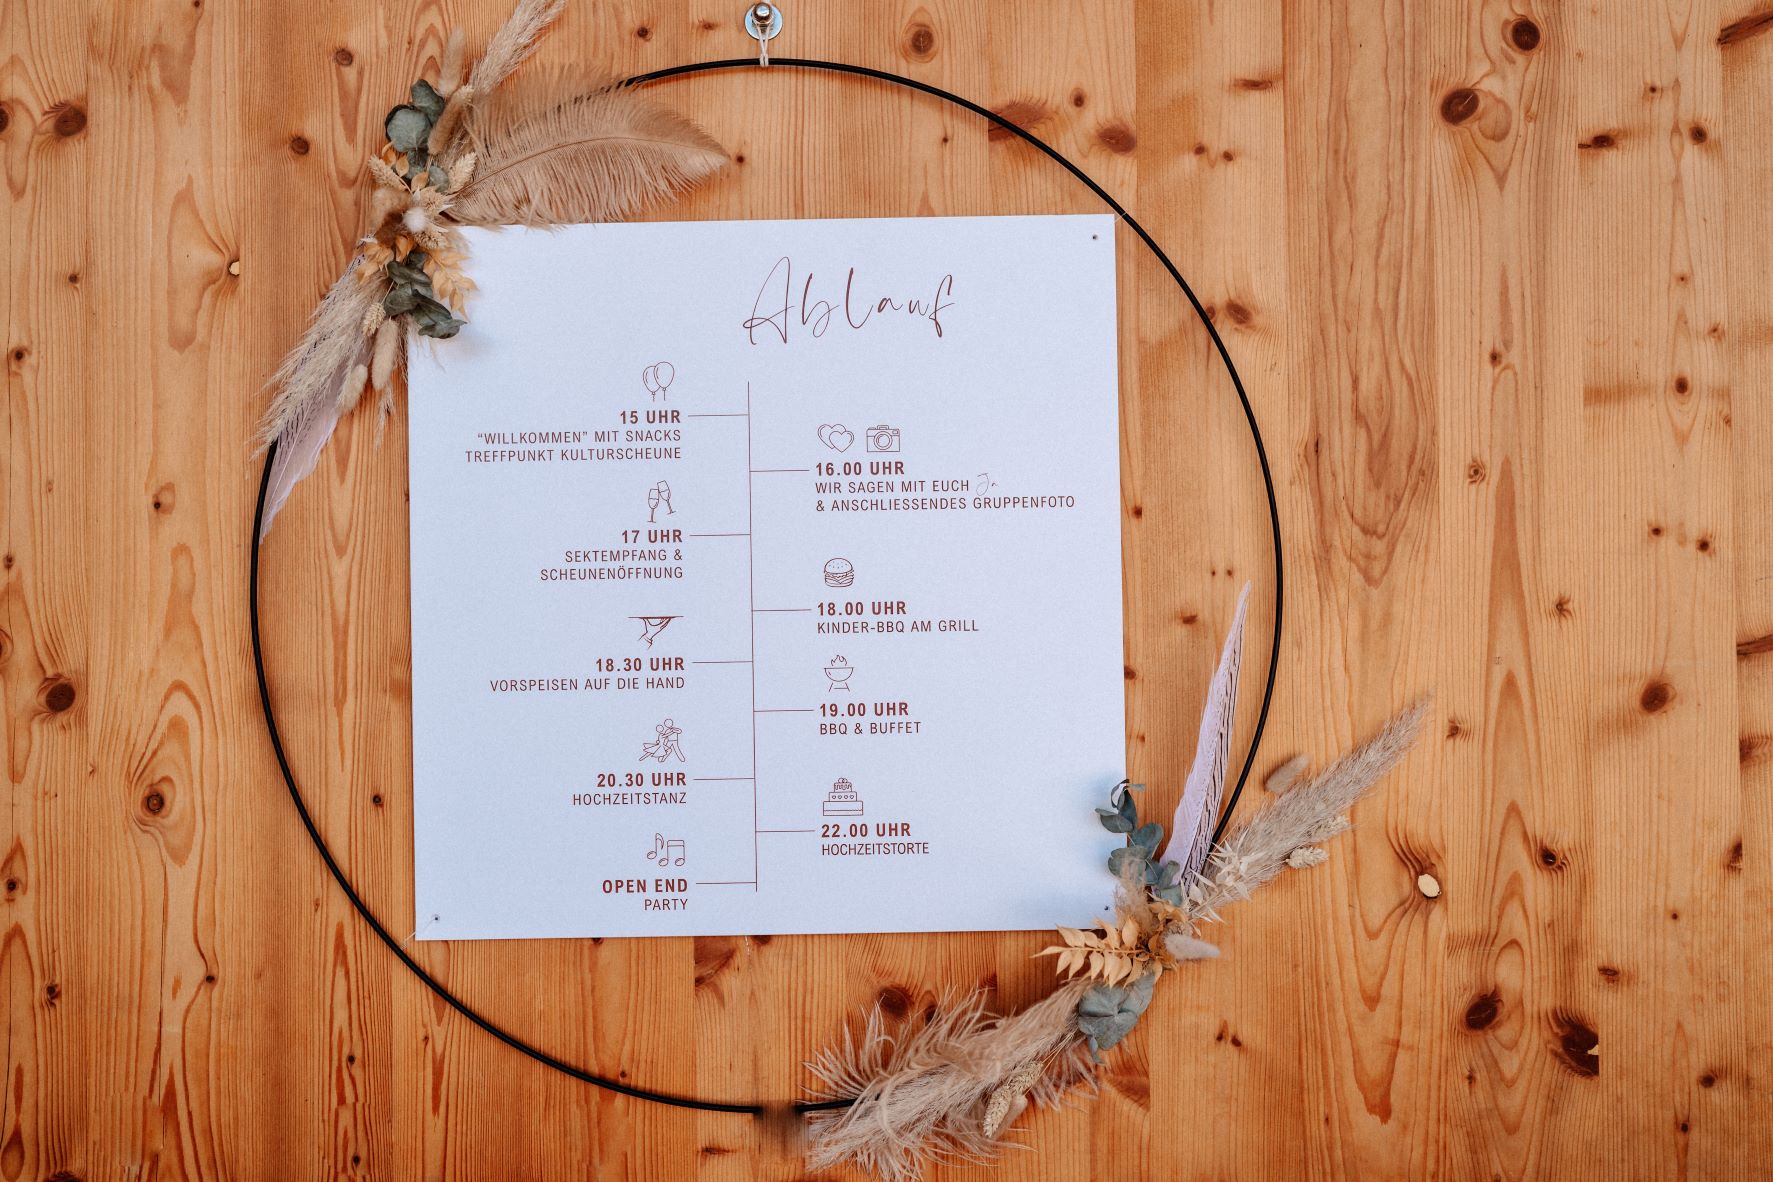 Ablauf
15 UHR
“WILLKOMMEN” MIT SNACKS
TREFFPUNKT KULTURSCHEUNE
16.00 UHR
WIR SAGEN MIT EUCH Ja
& ANSCHLIESSENDES GRUPPENFOTO
17 UHR
SEKTEMPFANG &
SCHEUNENÖFFNUNG
18.00 UHR
KINDER-BBQ AM GRILL
18.30 UHR
VORSPEISEN AUF DIE HAND
19.00 UHR
BBQ & BUFFET
20.30 UHR
HOCHZEITSTANZ
22.00 UHR
HOCHZEITSTORTE
OPEN END
PARTY